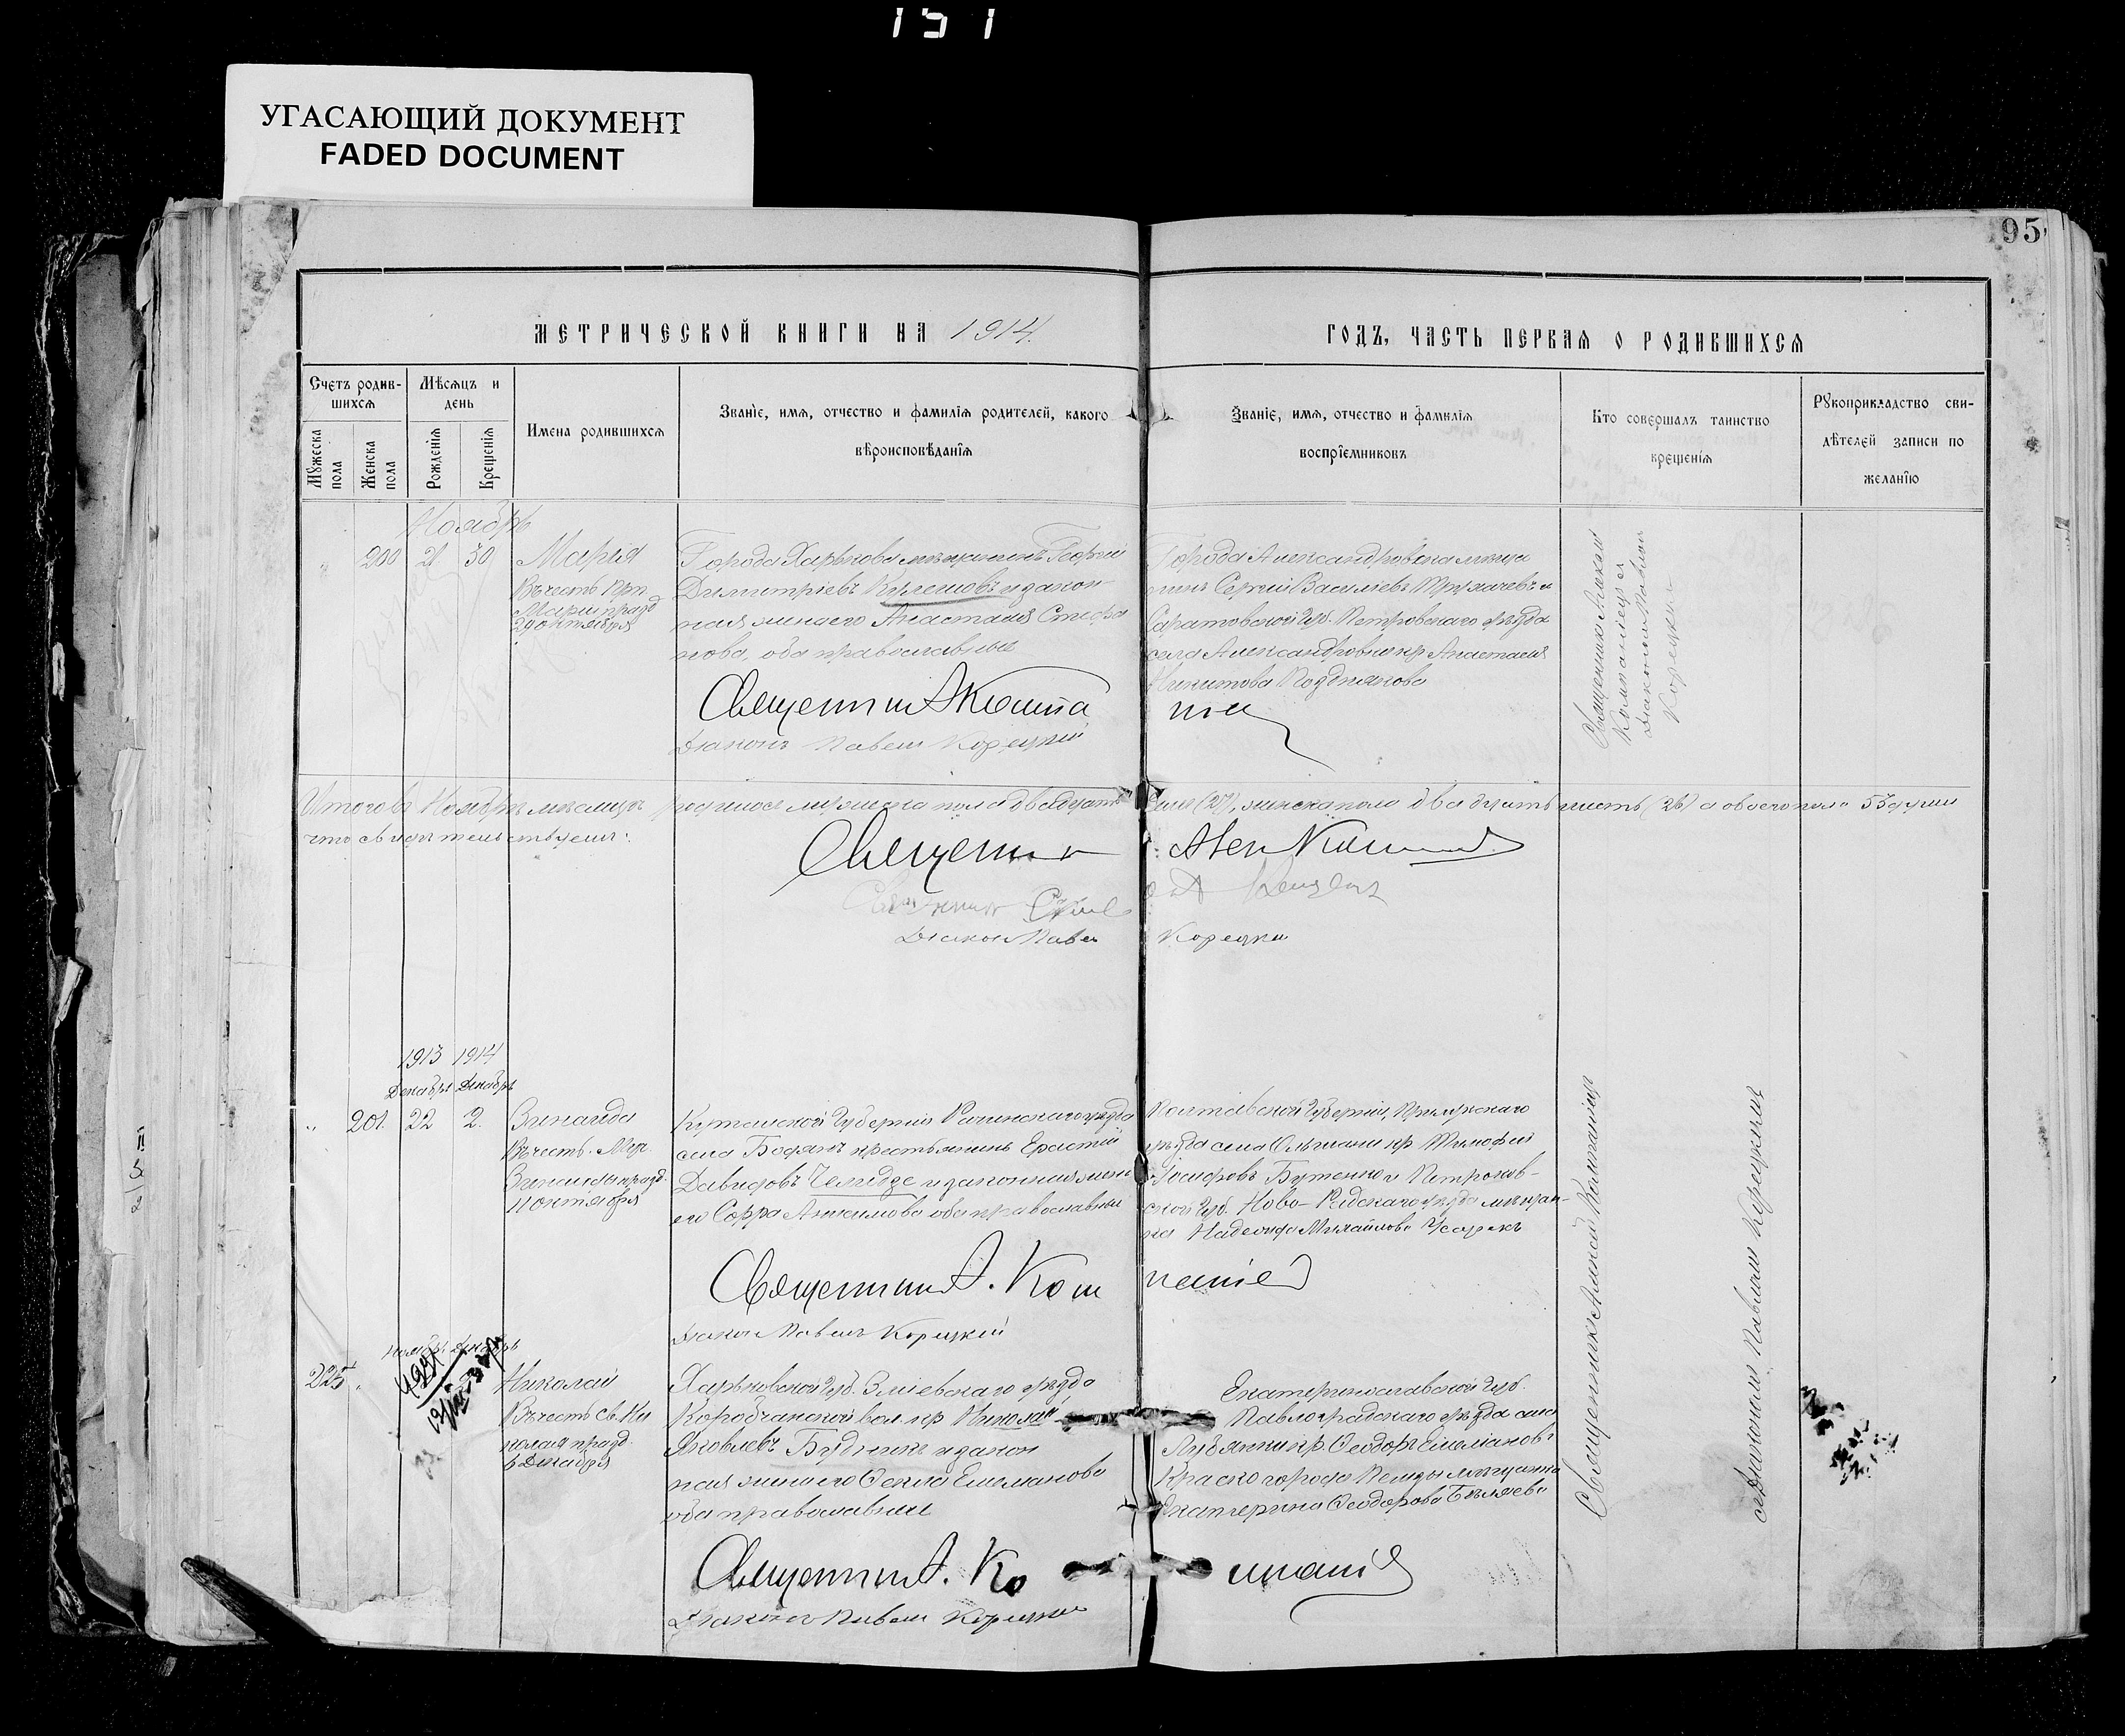 151
УГАСАЮЩИЙ ДОКУМЕНТ
FADED DOCUMENT
95
МЕТРИЧЕСКОЙ КНИГИ НА 1914.
ГОДЪ, ЧАСТЬ ПЕРВАЯ О РОДИВШИХСЯ
Счетъ родив-
шихся
Мѣсяцъ и
день
Мужеска
пола
Женска
пола
Рожденія
Крещенія
Имена родившихся
Званіе, имя, отчество и фамилія родителей, какого
вѣроисповѣданія
Званіе, имя, отчество и фамилія
воспріемниковъ
Кто совершалъ таинство
крещенія
Рукоприкладство сви-
дѣтелей записи по
желанію
Ноябрь
200 21 30 Марія
Въ честь Прп.
Маріи празд
29 октября
Города Харькова мѣщанинъ Георгій
Димитріевъ Кулешовъ и закон
ная жена его Анастасія Стефа
нова, оба православные
Священникъ А Компа
Діаконъ Павелъ Корецкій
Города Александровска мѣща
нинъ Сергій Васильевъ и
Саратовской губ. Петровскаго уѣзда
села Александровки кр Анастасія
Никитова Позднякова
ніец
Священникъ Алексій
Компаніецъ
діакономъ Павломъ
Корецкимъ
Итого въ Ноябрѣ мѣсяцѣ родилось мужеска пола двадцать семь (27), женска пола двадцать шесть (26) а обоего пола 53 души
что свидѣтельствуемъ:
Священникъ Алек
Священникъ
Діаконъ Павелъ Корецкій
1913 1914
Декабрь Декабрь
201. 22 2. Зинаида
Въ честь Муч.
Зинаиды празд.
11 октября
Кутаисской губерніи Рачинскаго уѣзда
села крестьянинъ Ерастій
Давидовъ Челидзе и законная жена
его оба православные
Священникъ А. Ком
Діаконъ Павелъ Корецкій
Полтавской губерніи, Прилукскаго
уѣзда села Ольшаны кр Тимофей
Іосифовъ Бутенко и Петроков-
ской губ. Ново-Радскаго уѣзда мѣщан-
ка Надежда Михайлова
паніец
Священникъ Алексій Компаніецъ
съ діакономъ Павломъ Корецкимъ
Ноябрь Декабрь
225 Николай
Въ честь св. Ни
колая празд.
6 Декабря
Харьковской губ. Зміевскаго уѣзда
Коробчанской вол кр Николай
Яковлевъ Будникъ и закон
ная жена его Ѳекла Емельянова
оба православные
Священникъ А. Ко
Діаконъ Павелъ Корецкій
Екатеринославской губ.
Павлоградскаго уѣзда села
кр. Ѳеодоръ Емельяновъ
Краско города Пензы мѣщанка
Екатерина Ѳеодорова Бѣляева
мпаніец